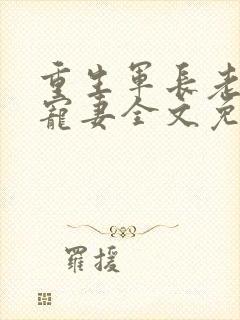 重生軍長老
寵妻全文免
羅援